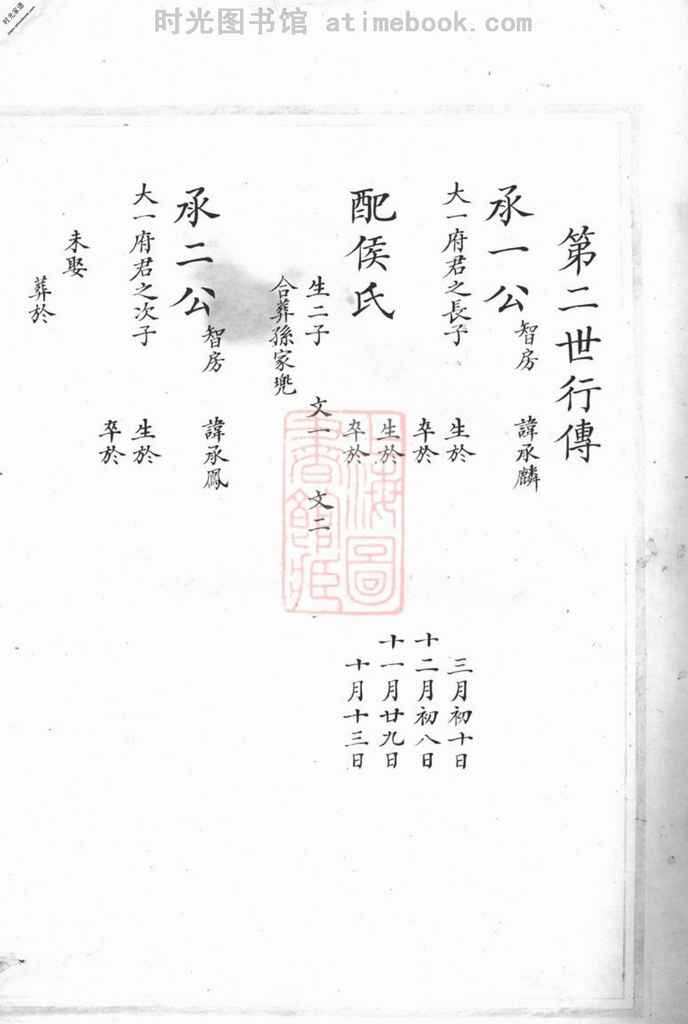 时光图书馆 atimebook.com
时光家谱
第二世行傳
承一公 智房 諱承麟
大一府君之長子 生於 三月初十日
卒於 十二月初八日
配侯氏 生於 十一月廿九日
卒於 十月十三日
生二子 文一 文二
合葬孫家兠
承二公 智房 諱承鳳
大一府君之次子 生於
卒於
未娶
葬於
上海圖
書館藏